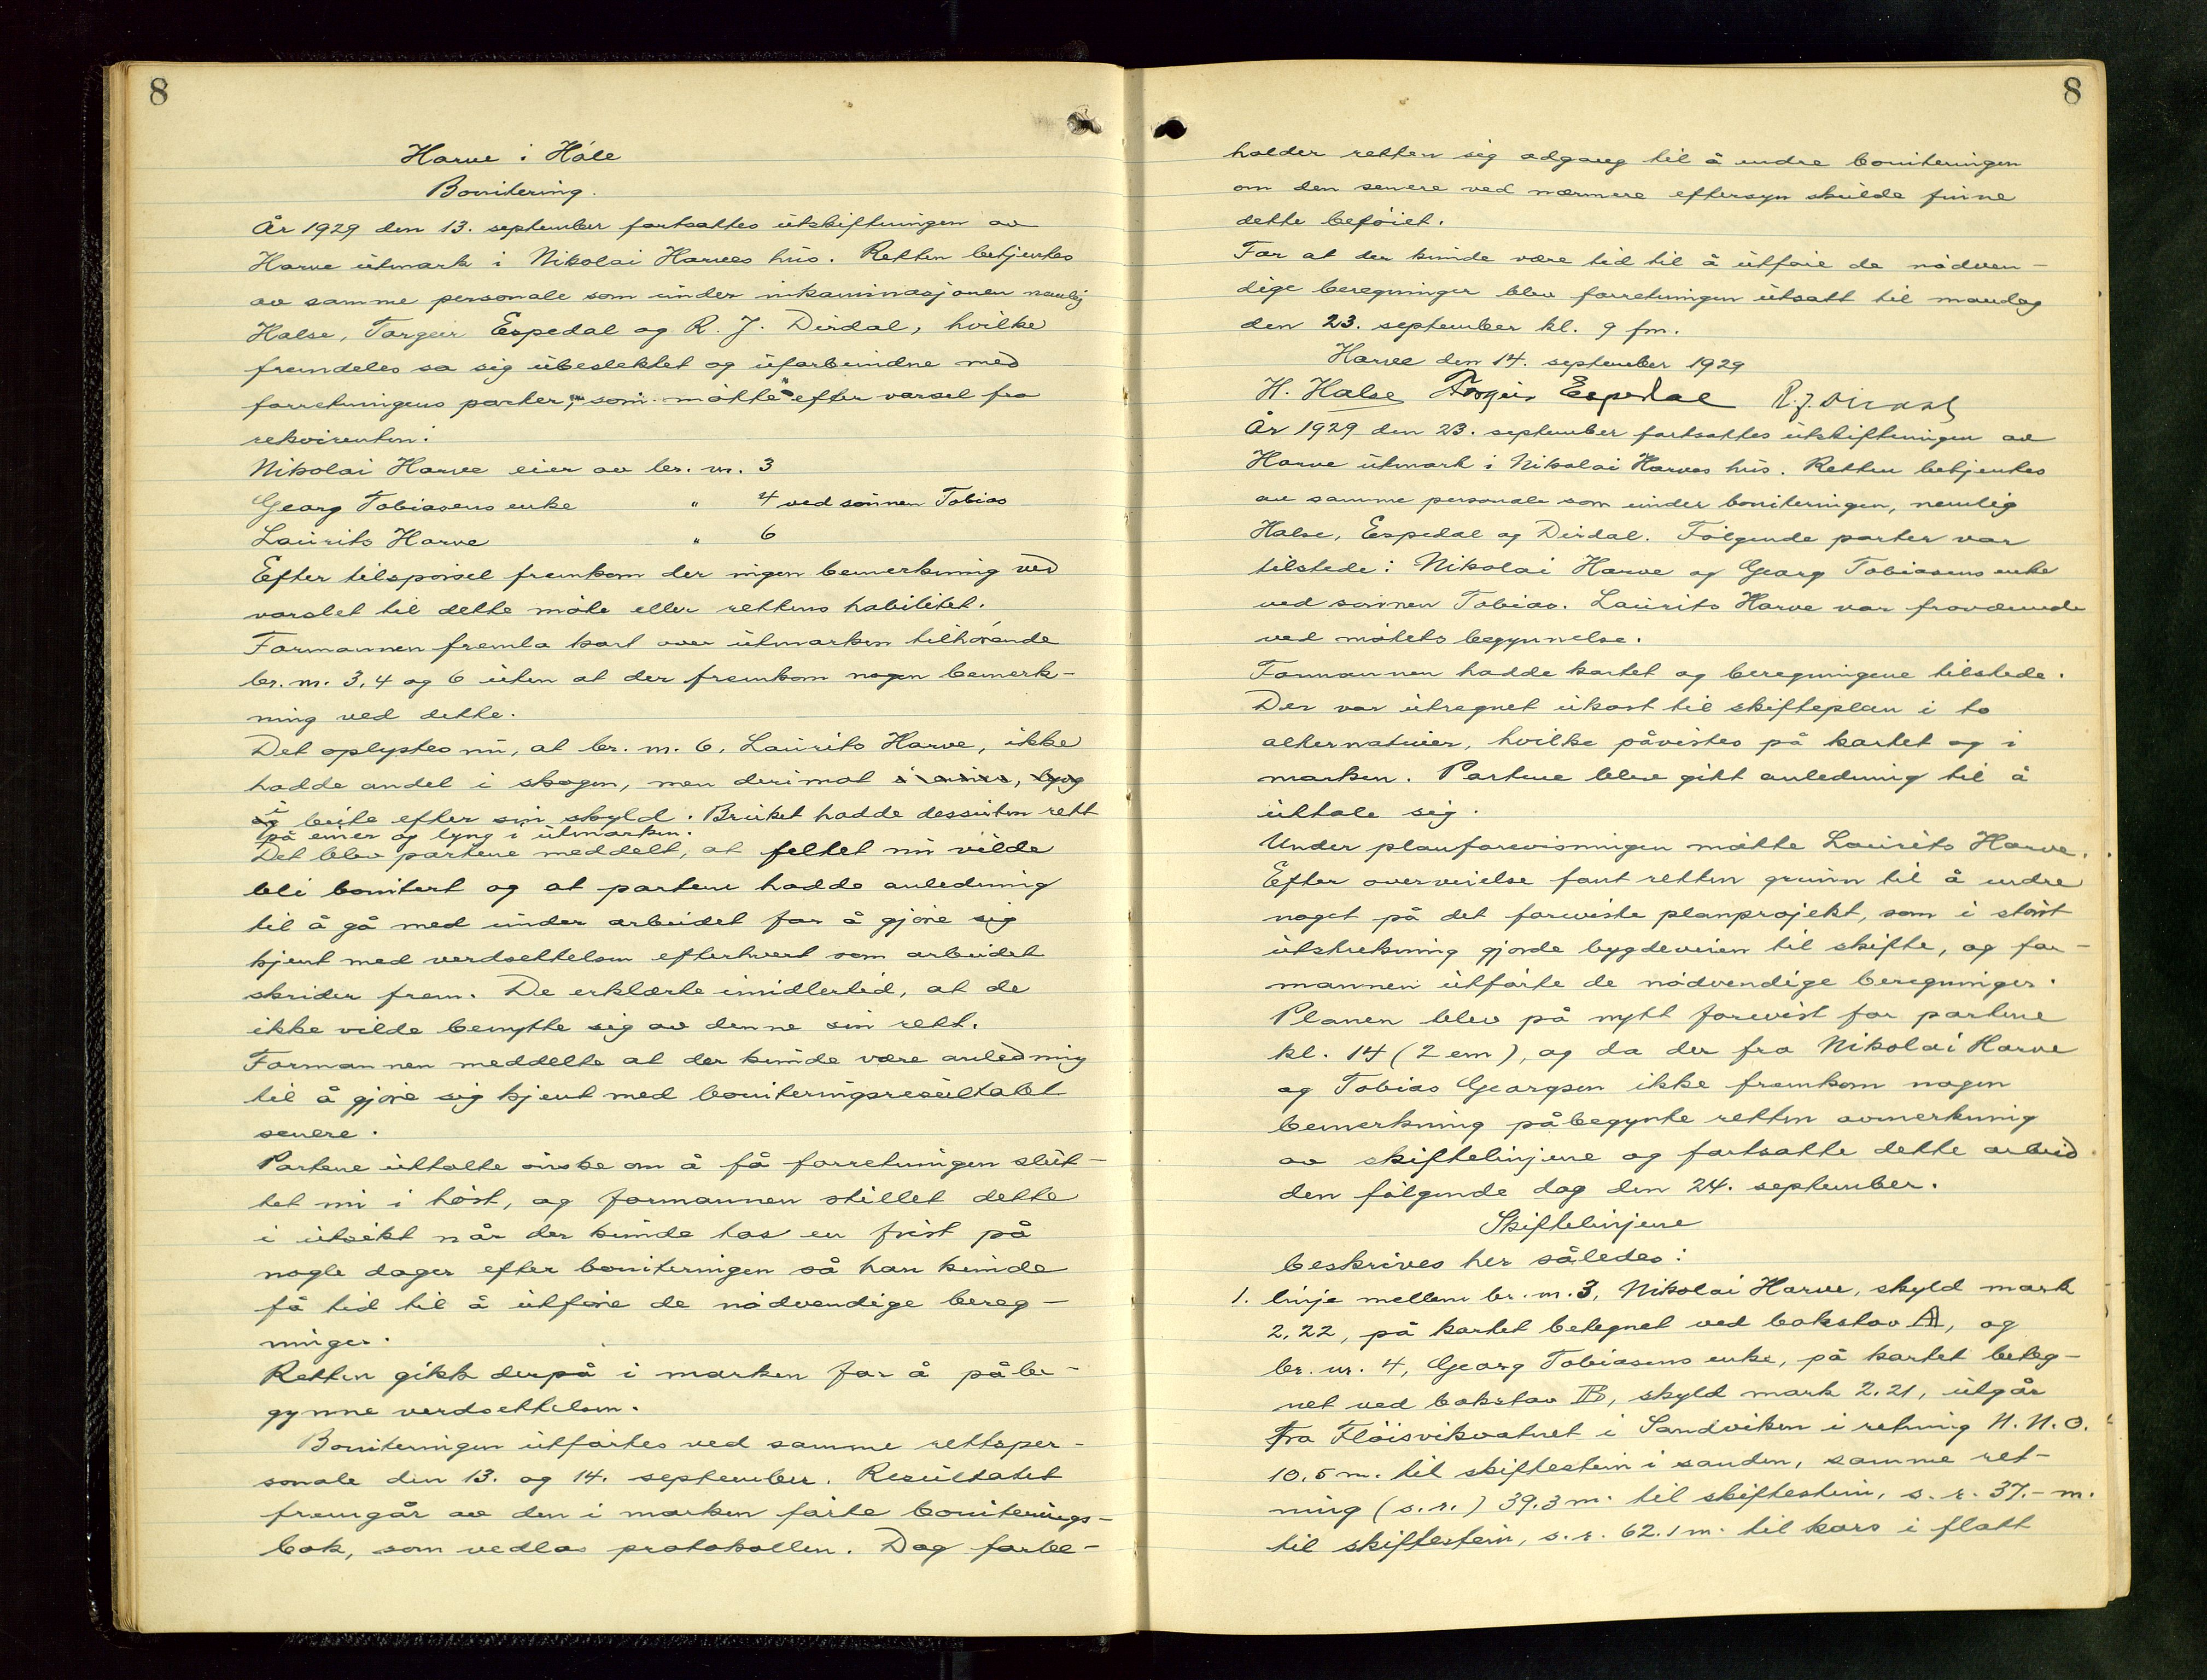 8
Harve i Hále
Bonitering.
År 1929 den 13. september fortsattes utskiftningen av
Harve utmark i Nikolai Harves hus. Retten betjentes
av samme personale som under inkaminasjonen nemlig
Halse, Torgeir Espedal og R. J. Dirdal, hvilke
fremdeles sa sig ubeslektet og uforbundne med
forretningens parter, som møtte efter varsel fra
rekvirenten:
Nikolai Harve eier av br. nr. 3
Georg Tobiasens enke " 4 ved sønnen Tobias
Laurits Harve " 6
Efter tilspørsel fremkom der ingen bemerkning ved
varslet til dette møte eller rettens habilitet.
Formannen fremla kart over utmarken tilhørende
br. nr. 3, 4 og 6 uten at der fremkom nogen bemerk-
ning ved dette.
Det oplystes nu, at br. nr. 6, Laurits Harve, ikke
hadde andel i skogen, men derimot i einer, lyng
og i beite efter sin skyld. Bruket hadde dessuten rett
på einer og lyng i utmarken.
Det blev partene meddelt, at feltet nu vilde
bli bonitert og at partene hadde anledning
til å gå med under arbeidet for å gjøre sig
kjent med verdsettelsen efterhvert som arbeidet
skrider frem. De erklærte imidlertid, at de
ikke vilde benytte sig av denne sin rett.
Formannen meddelte at der kunde være anledning
til å gjøre sig kjent med boniteringsresultatet
senere.
Partene uttalte ønske om å få forretningen slut-
tet nu i høst, og formannen stillet dette
i utsikt når der kunde tas en frist på
nogle dager efter boniteringen så han kunde
få tid til å utføre de nødvendige bereg-
ninger.
Retten gikk derpå i marken for å påbe-
gynne verdsettelsen.
Boniteringen utførtes ved samme rettsper-
sonale den 13. og 14. september. Resultatet
fremgår av den i marken førte boniterings-
bok, som vedlas protokollen. Dog forbe-
8
holder retten sig adgang til å endre boniteringen
om den senere ved nærmere eftersyn skulde finne
dette beføiet.
For at der kunde være tid til å utføre de nødven-
dige beregninger blev forretningen utsatt til mandag
den 23. september kl. 9 fm.
Harve den 14. september 1929
H. Halse Torgeir Espedal R. J. Dirdal
År 1929 den 23. september fortsattes utskiftningen av
Harve utmark i Nikolai Harves hus. Retten betjentes
av samme personale som under boniteringen, nemlig
Halse, Espedal og Dirdal. Følgende parter var
tilstede: Nikolai Harve og Georg Tobiasens enke
ved sønnen Tobias. Laurits Harve var fraværende
ved møtets begynnelse.
Formannen hadde kartet og beregningene tilstede.
Der var utregnet utkast til skifteplan i to
alternativer, hvilke påvistes på kartet og i
marken. Partene blev gitt anledning til å
uttale sig.
Under planforevisningen møtte Laurits Harve.
Efter overveielse fant retten grunn til å endre
noget på det foreviste planprojekt, som i størst
utstrekning gjorde bygdeveien til skifte, og for-
mannen utførte de nødvendige beregninger.
Planen blev på nytt forevist for partene
kl. 14 (2 em), og da der fra Nikolai Harve
og Tobias Georgsen ikke fremkom nogen
bemerkning påbegynte retten avmerkning
av skiftelinjene og fortsatte dette arbeid
den følgende dag den 24. september.
Skiftelinjene
beskrives her således:
1. linje mellem br. nr. 3, Nikolai Harve, skyld mark
2.22, på kartet betegnet ved bokstav A, og
br. nr. 4, Georg Tobiasens enke, på kartet beteg-
net ved bokstav B, skyld mark 2.21, utgår
fra Fløisvikvatnet i Sandviken i retning N. N. O.
10.5 m. til skiftestein i sanden, samme ret-
ning (s. r.) 39.3 m. til skiftestein, s. r. 37.- m.
til skiftestein, s. r. 62.1 m. til kors i flatt